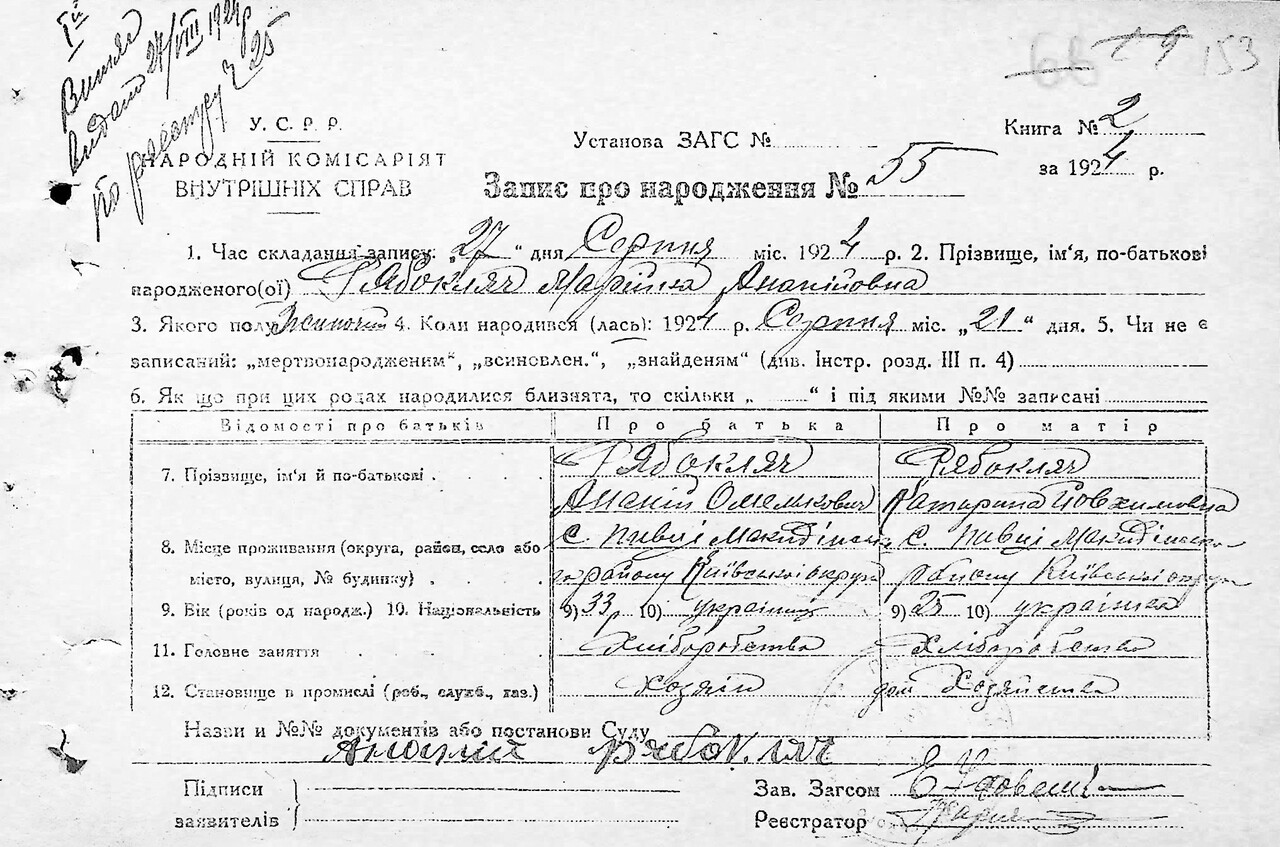 Іий
Випис
видано 27/VIII 1924 р
по реестру Ч 25
153
У. С. Р. Р.
НАРОДНІЙ КОМІСАРІЯТ
ВНУТРІШНІХ СПРАВ
Установа ЗАГС №
Книга № 2
за 1924 р.
Запис про народження № 55
1. Час складання запису: „27“ дня Серпня міс. 1924 р. 2. Прізвище, ім'я, по-батькові
народженого(ої) Рябокляч Марійка Ананійовна
3. Якого полу 4. Коли народився (лась): 1924 р. Серпня міс. „21“ дня. 5. Чи не є
записаний: „мертвонародженим“, „всиновлен.“, „знайденям“ (див. Інстр. розд. III п. 4)
6. Як що при цих родах народилися близнята, то скільки „ “ і під якими №№ записані
Відомості про батьків Про батька Про матір
7. Прізвище, ім'я й по-батькові . . . Рябокляч Рябокляч
Ананій Омелькович Катарина Йовхимовна
8. Місце проживання (округа, район, село або с. Пивці с. Пивці
місто, вулиця, № будинку) . . району Київської округи району Київської округи
9. Вік (років од народж.) 10. Національність 9) 33 р 10) українець 9) 25 10) українка
11. Головне заняття . . . Хліборобства Хліборобства
12. Становище в промислі (роб., служб., хаз.) Хозяїн дом. Хозяйства
Назви и №№ документів або постанови Суду
Ананий Рябокляч
Підписи
заявителів
Зав. Загсом
Реєстратор